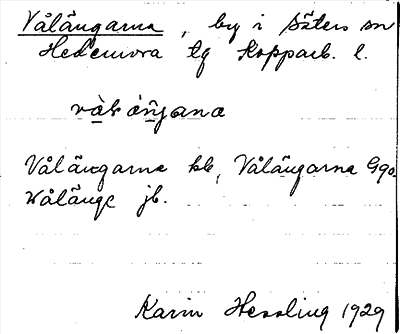 Vålängarna, by i Säters sn
Hedemora tg Kopparb. l.
Vålängarna kb, Vålängarna Gqo.
Wålänge jb.
Karin Hessling 1929